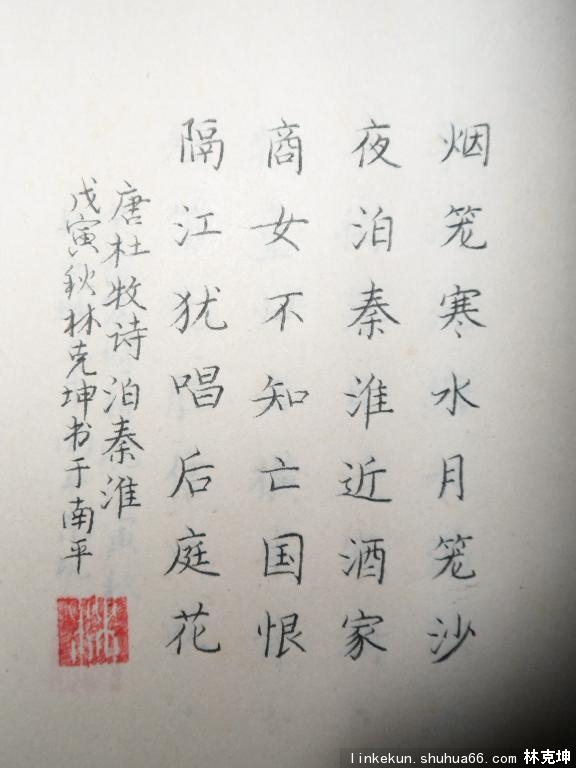 烟笼寒水月笼沙
夜泊秦淮近酒家
商女不知亡国恨
隔江犹唱后庭花
唐杜牧诗 泊秦淮
戊寅秋林克坤书于南平
linkekun.shuhua66.com 林克坤